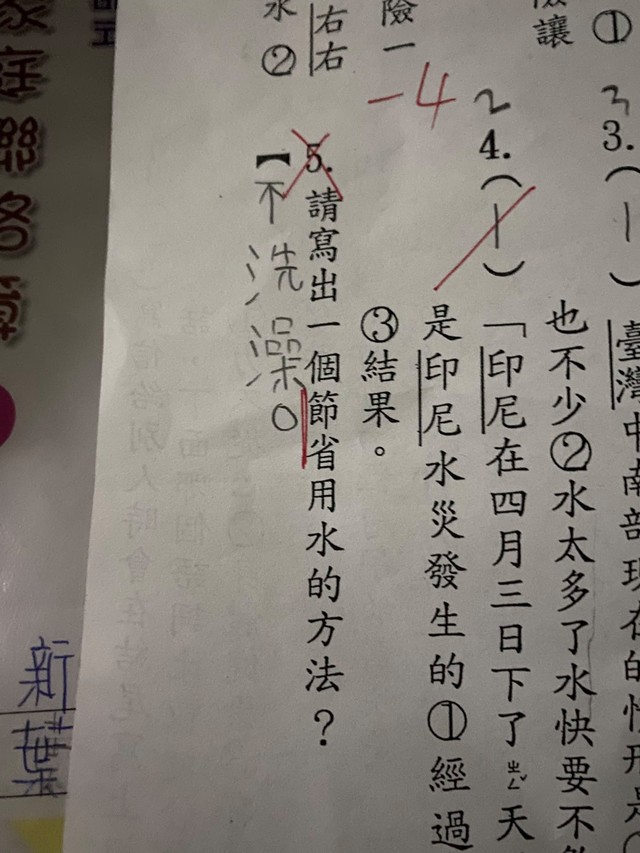 險讓①
3
3.(1)臺灣中南部現在的情形是
也不少②水太多了水快要不
2
4.(1)「印尼在四月三日下了ㄓㄥˇ天
是印尼水災發生的①經過
險一
-4
③結果。
右右
5.請寫出一個節省用水的方法?
水②
【不洗澡。
家庭聯絡簿
新葉